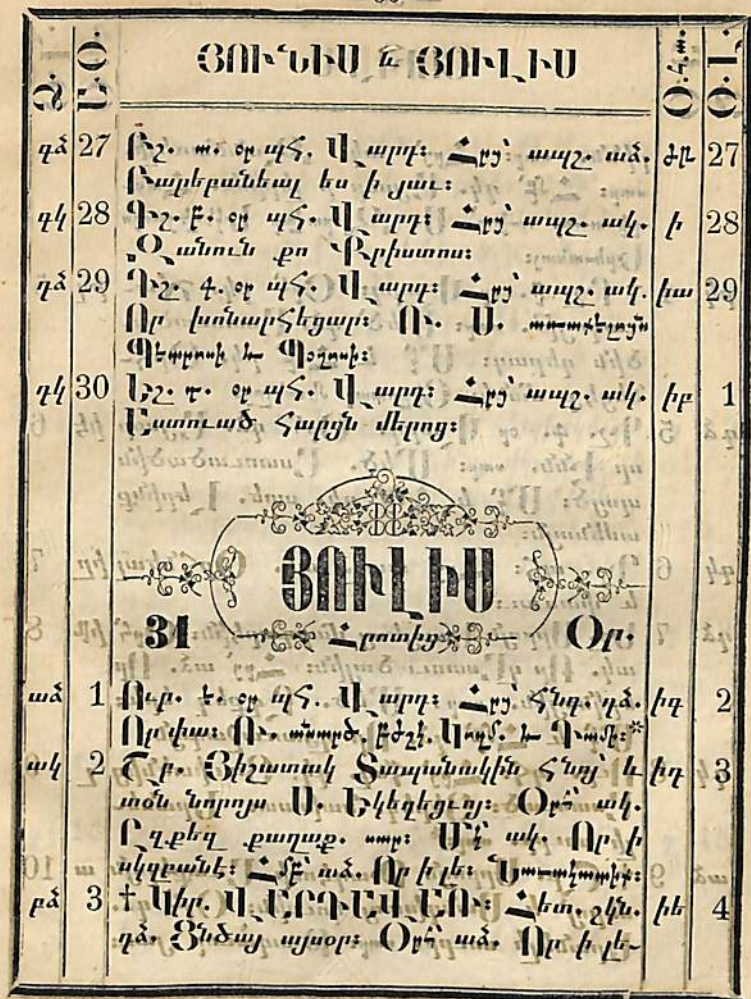 ՅՈՒՆԻՍ և ՅՈՒԼԻՍ
Ձ. Ե. Օ. Օ. Հ. տ. Օ. Լ.
դձ 27 Բշ. ա. օր պհ. Վարդ: Հրց՝ ապշ. աձ. ժթ 27
Բարեբանեալ ես ի յաւ:
դկ 28 Գշ. բ. օր պհ. Վարդ: Հրց՝ ապշ. ակ. ի 28
Զանուն քո Քրիստոս:
դձ 29 Դշ. գ. օր պհ. Վարդ: Հրց՝ ապշ. ակ. իա 29
Որ խոնարհեցար: Ու. Ս. առաքելոցն
Պետրոսի և Պօղոսի:
դկ 30 Եշ. դ. օր պհ. Վարդ: Հրց՝ ապշ. ակ. իբ 1
Աստուած հարցն մերոց:
ՅՈՒԼԻՍ
31 Հրոտից Օր.
աձ 1 Ուր. ե. օր պհ. Վարդ: Հրց՝ հնգ. դձ. իգ 2
Որ փա: Ու. անարծ. բժշէ. Կոզմ. և Դամի:*
ակ 2 Շբ. Յիշատակ Տապանակին հնոյ՝ և իդ 3
տօն նորոյս Ս. Եկեղեցւոյ: Օրհ՝ ակ.
Ըզքեզ քաղաք. առ: Մե՛ ակ. Որ ի
սկզբանէ: Համբ՝ աձ. Որ ի լե: Նաւակատիք:
բձ 3 † Կիր. ՎԱՐԴԱՎԱՌ: Հետ. շկն. իե 4
դձ. Ցնծայ այսօր: Օրհ՝ աձ. Որ ի լե-